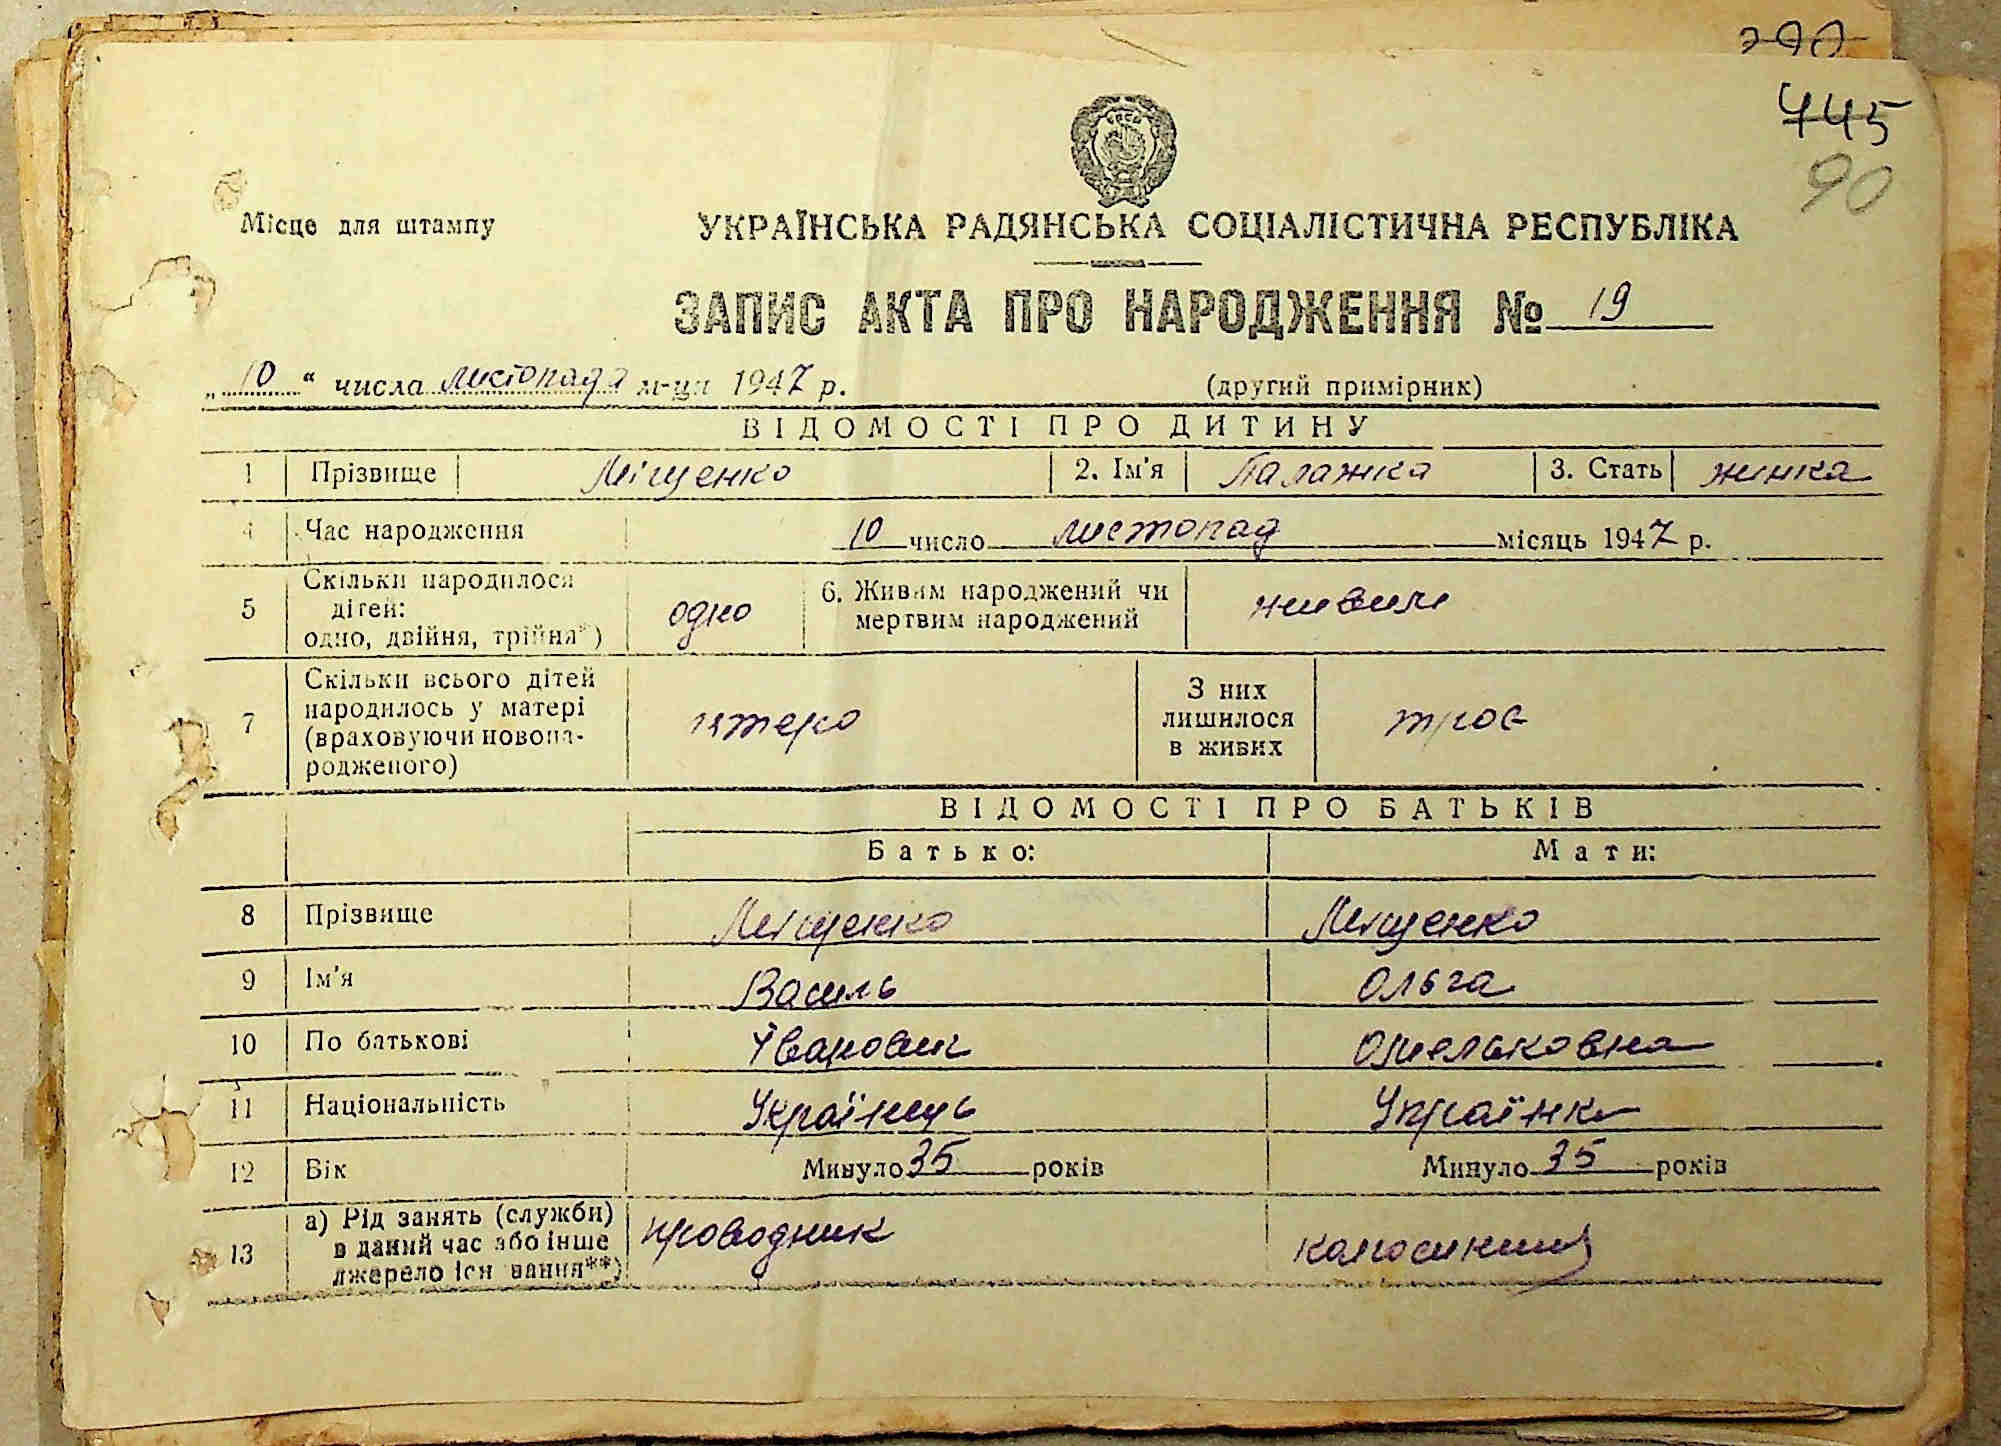 290
445
90
Місце для штампу
УКРАЇНСЬКА РАДЯНСЬКА СОЦІАЛІСТИЧНА РЕСПУБЛІКА
ЗАПИС АКТА ПРО НАРОДЖЕННЯ № 19
„10“ числа листопада м-ця 1947 р. (другий примірник)
ВІДОМОСТІ ПРО ДИТИНУ
1 Прізвище Міщенко 2. Ім'я Палажка 3. Стать жинка
4 Час народження 10 число листопад місяць 1947 р.
5 Скільки народилося дітей: одно, двійня, трійня*) одно 6. Живим народжений чи мертвим народжений живим
7 Скільки всього дітей народилось у матері (враховуючи новона-родженого) птеро З них лишилося в живих троє
ВІДОМОСТІ ПРО БАТЬКІВ
Батько: Мати:
8 Прізвище Міщенко Міщенко
9 Ім'я Василь Ольга
10 По батькові Іванович Омельковна
11 Національність Українець Українка
12 Вік Минуло 35 років Минуло 35 років
13 а) Рід занять (служби) в даний час або інше джерело існування**) проводник